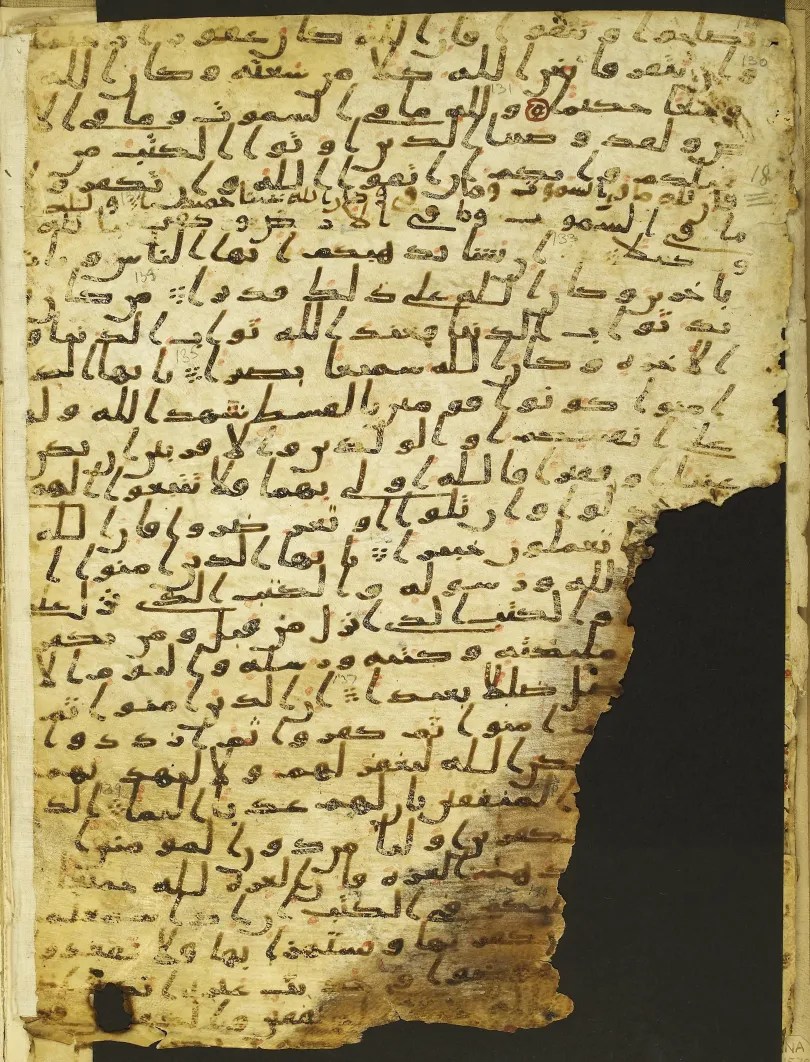 تصلحوا و تتقوا فان الله كان غفورا رحيما
وان يتفرقا يغن الله كلا من سعته وكان الله
وسعا حكيما ولله ما في السموت وما في الا
رض ولقد وصينا الذين اوتوا الكتب من
قبلكم واياكم ان اتقوا الله وان تكفروا
فان لله ما في السموت وما في الارض وكان الله غنيا حميدا ولله
ما في السموت وما في الارض وكفى بالله
وكيلا ان يشا يذهبكم ايها الناس ويات
باخرين وكان الله على ذلك قديرا من كان ير
يد ثواب الدنيا فعند الله ثواب الدنيا و
الاخره وكان الله سميعا بصيرا يايها الذين
امنوا كونوا قومين بالقسط شهدا لله ولو
على انفسكم او الولدين والاقربين ان يكن
غنيا او فقيرا فالله اولى بهما فلا تتبعوا الهوى
تعدلوا وان تلوا او تعرضوا فان الله
تعملون خبيرا يايها الذين امنوا ا
بالله ورسوله والكتب الذي نزل على
والكتب الذي انزل من قبل ومن يكفر
مليكته وكتبه ورسله واليوم الا
ضل ضللا بعيدا ان الذين امنوا ثم
امنوا ثم كفروا ثم ازدادوا
يكن الله ليغفر لهم ولا ليهديهم
المنفقين بان لهم عذابا اليما الذ
الكفرين اوليا من دون المومنين ا
عندهم العزه فان العزه لله جميعا
عليكم في الكتب ان اذا سمعتم
يكفر بها ويستهزا بها فلا تقعدوا
يخوضوا في